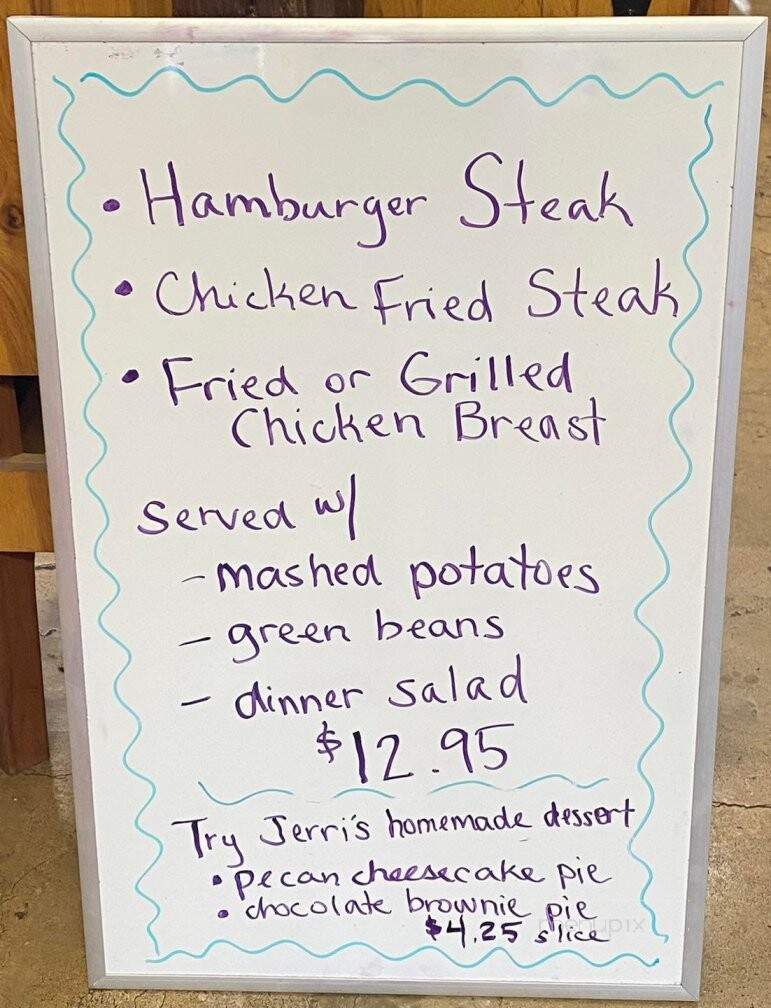 • Hamburger Steak
• Chicken Fried Steak
• Fried or Grilled
Chicken Breast
Served w/
- mashed potatoes
- green beans
- dinner salad
$12.95
Try Jerri's homemade dessert
• pecan cheesecake pie
• chocolate brownie pie
$4.25 slice
menupix